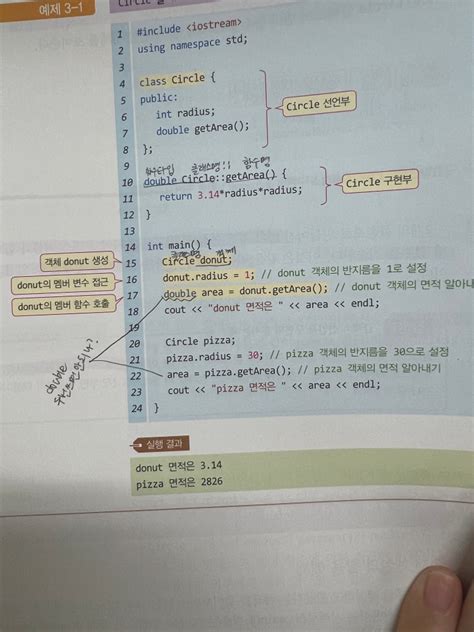 예제 3-1
Circle
1 #include <iostream>
2 using namespace std;
3
4 class Circle {
5 public:
6 int radius;
7 double getArea();
8 };
Circle 선언부
9
클래스명
함수명
10 double Circle::getArea() {
11 return 3.14*radius*radius;
12 }
Circle 구현부
13
14 int main() {
객체
객체 donut 생성
15 Circle donut;
donut의 멤버 변수 접근
16 donut.radius = 1; // donut 객체의 반지름을 1로 설정
donut의 멤버 함수 호출
17 double area = donut.getArea(); // donut 객체의 면적 알아내
18 cout << "donut 면적은 " << area << endl;
19
20 Circle pizza;
21 pizza.radius = 30; // pizza 객체의 반지름을 30으로 설정
22 area = pizza.getArea(); // pizza 객체의 면적 알아내기
23 cout << "pizza 면적은 " << area << endl;
24 }
double
실행 결과
donut 면적은 3.14
pizza 면적은 2826